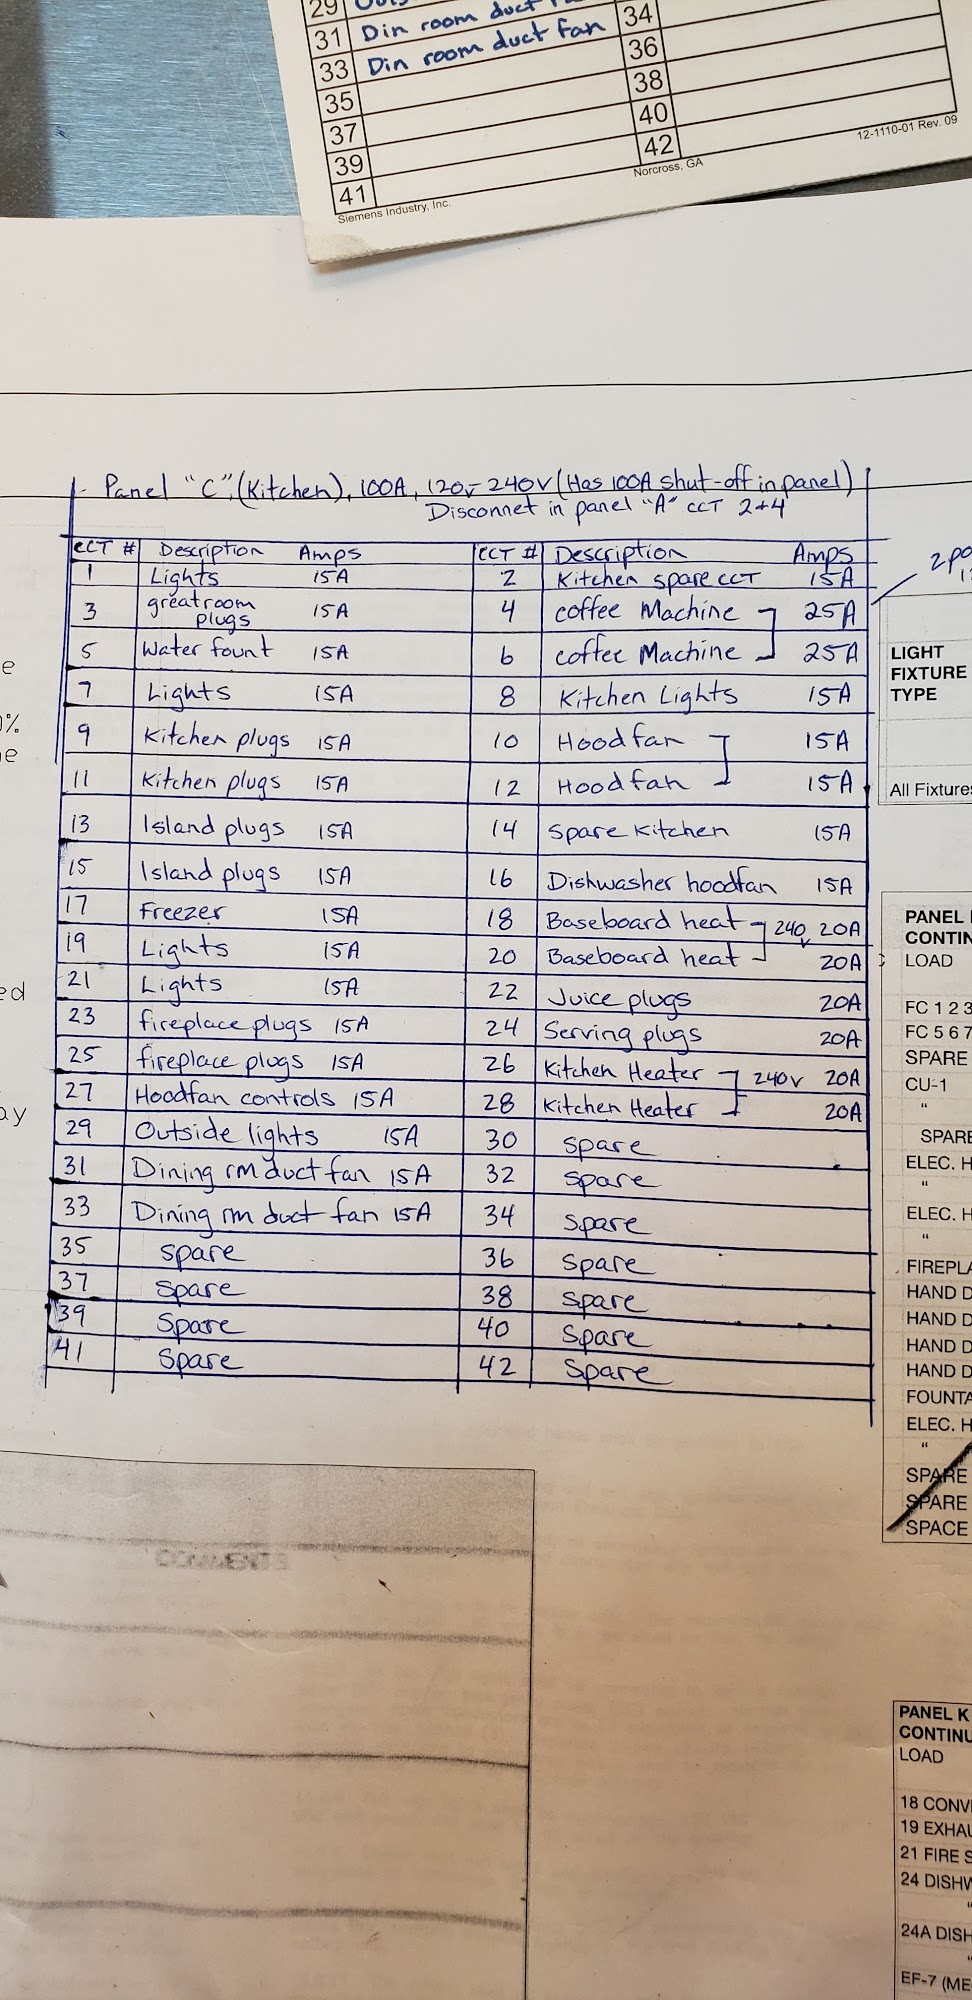 29
31 Din room duct
33 Din room duct fan
35
37
39
41
34
36
38
40
42
Siemens Industry, Inc.
Norcross, GA
12-1110-01 Rev. 09
Panel "C", (Kitchen), 100A, 120,- 240V (Has 100A shut-off in panel)
Disconnet in panel "A" CCT 2+4
CCT # Description Amps CCT # Description Amps
1 Lights 15A 2 Kitchen spare CCT 15A
3 greatroom plugs 15A 4 coffee Machine 25A
5 Water fount 15A 6 coffee Machine 25A
7 Lights 15A 8 Kitchen Lights 15A
9 Kitchen plugs 15A 10 Hood fan 15A
11 Kitchen plugs 15A 12 Hood fan 15A
13 Island plugs 15A 14 Spare Kitchen 15A
15 Island plugs 15A 16 Dishwasher hoodfan 15A
17 Freezer 15A 18 Baseboard heat 240v 20A
19 Lights 15A 20 Baseboard heat 20A
21 Lights 15A 22 Juice plugs 20A
23 fireplace plugs 15A 24 Serving plugs 20A
25 fireplace plugs 15A 26 Kitchen Heater 240v 20A
27 Hoodfan controls 15A 28 Kitchen Heater 20A
29 Outside lights 15A 30 Spare
31 Dining rm duct fan 15A 32 Spare
33 Dining rm duct fan 15A 34 Spare
35 Spare 36 Spare
37 Spare 38 Spare
39 Spare 40 Spare
41 Spare 42 Spare
LIGHT
FIXTURE
TYPE
All Fixtures
PANEL
CONTIN
LOAD
FC 1 2 3
FC 5 6 7
SPARE
CU-1
"
SPARE
ELEC. H
"
ELEC. H
"
FIREPLA
HAND D
HAND D
HAND D
HAND D
FOUNTA
ELEC. H
"
SPARE
SPARE
SPACE
COMMENTS
PANEL K
CONTINU
LOAD
18 CONV
19 EXHAU
21 FIRE S
24 DISHW
"
24A DISH
"
EF-7 (ME